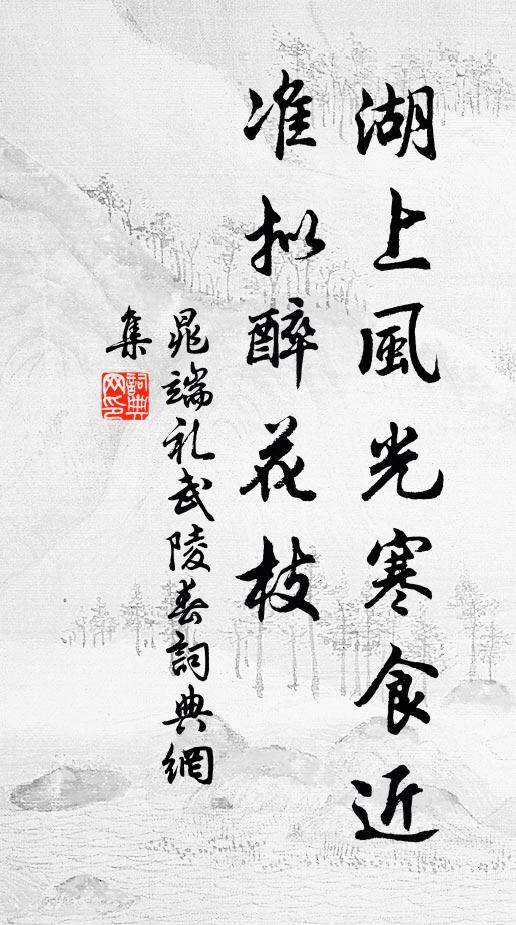 湖上風光寒食近
准拟醉花枝
晁端礼武陵春詞典網
集
詞典
网印